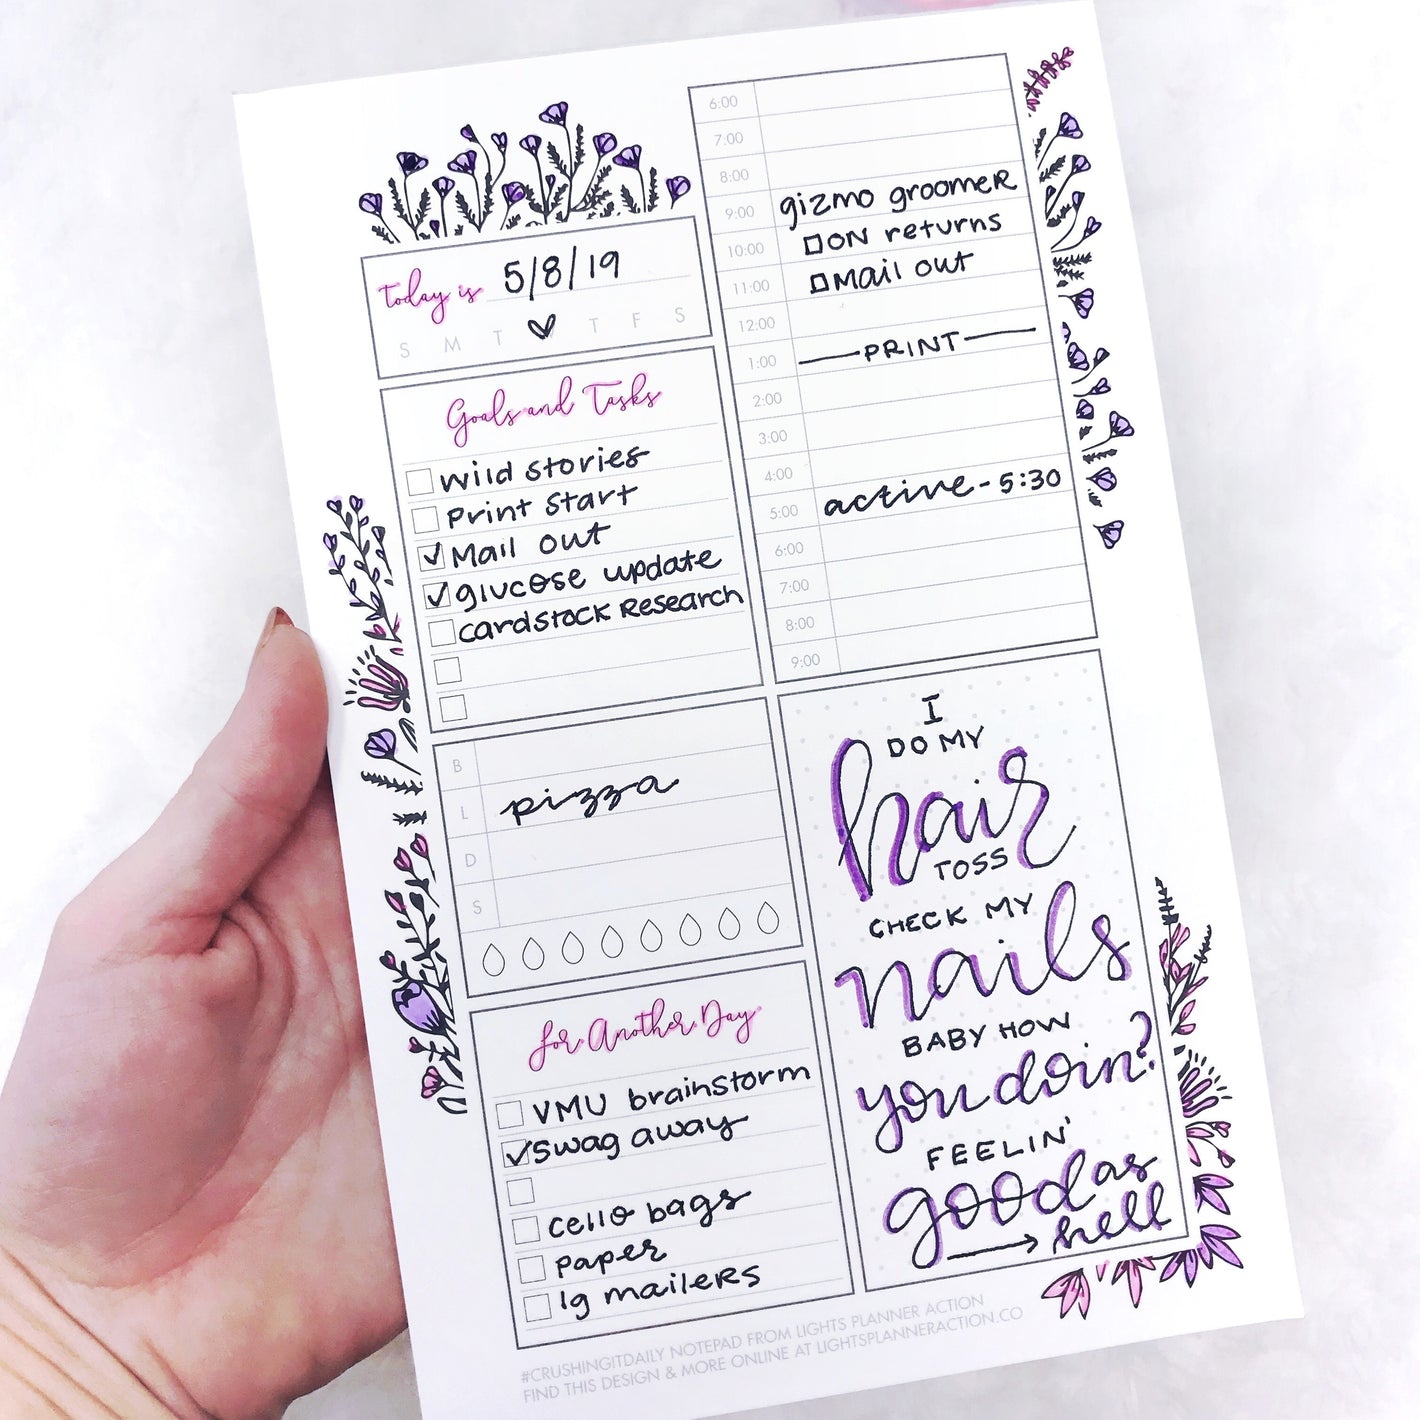 Today is 5/8/19
S M T T F S
Goals and Tasks
wild stories
Print Start
Mail out
glucose update
cardstock Research
B
L pizza
D
S
for Another Day
VMU brainstorm
swag away
cello bags
paper
lg mailers
6:00
7:00
8:00
9:00 gizmo groomeR
10:00 ON returns
11:00 Mail out
12:00
1:00 PRINT
2:00
3:00
4:00
5:00 active - 5:30
6:00
7:00
8:00
9:00
I
DO MY
hair
TOSS
CHECK MY
nails
BABY HOW
you doin?
FEELIN'
good as
hell
#CRUSHINGITDAILY NOTEPAD FROM LIGHTS PLANNER ACTION
FIND THIS DESIGN & MORE ONLINE AT LIGHTSPLANNERACTION.CO